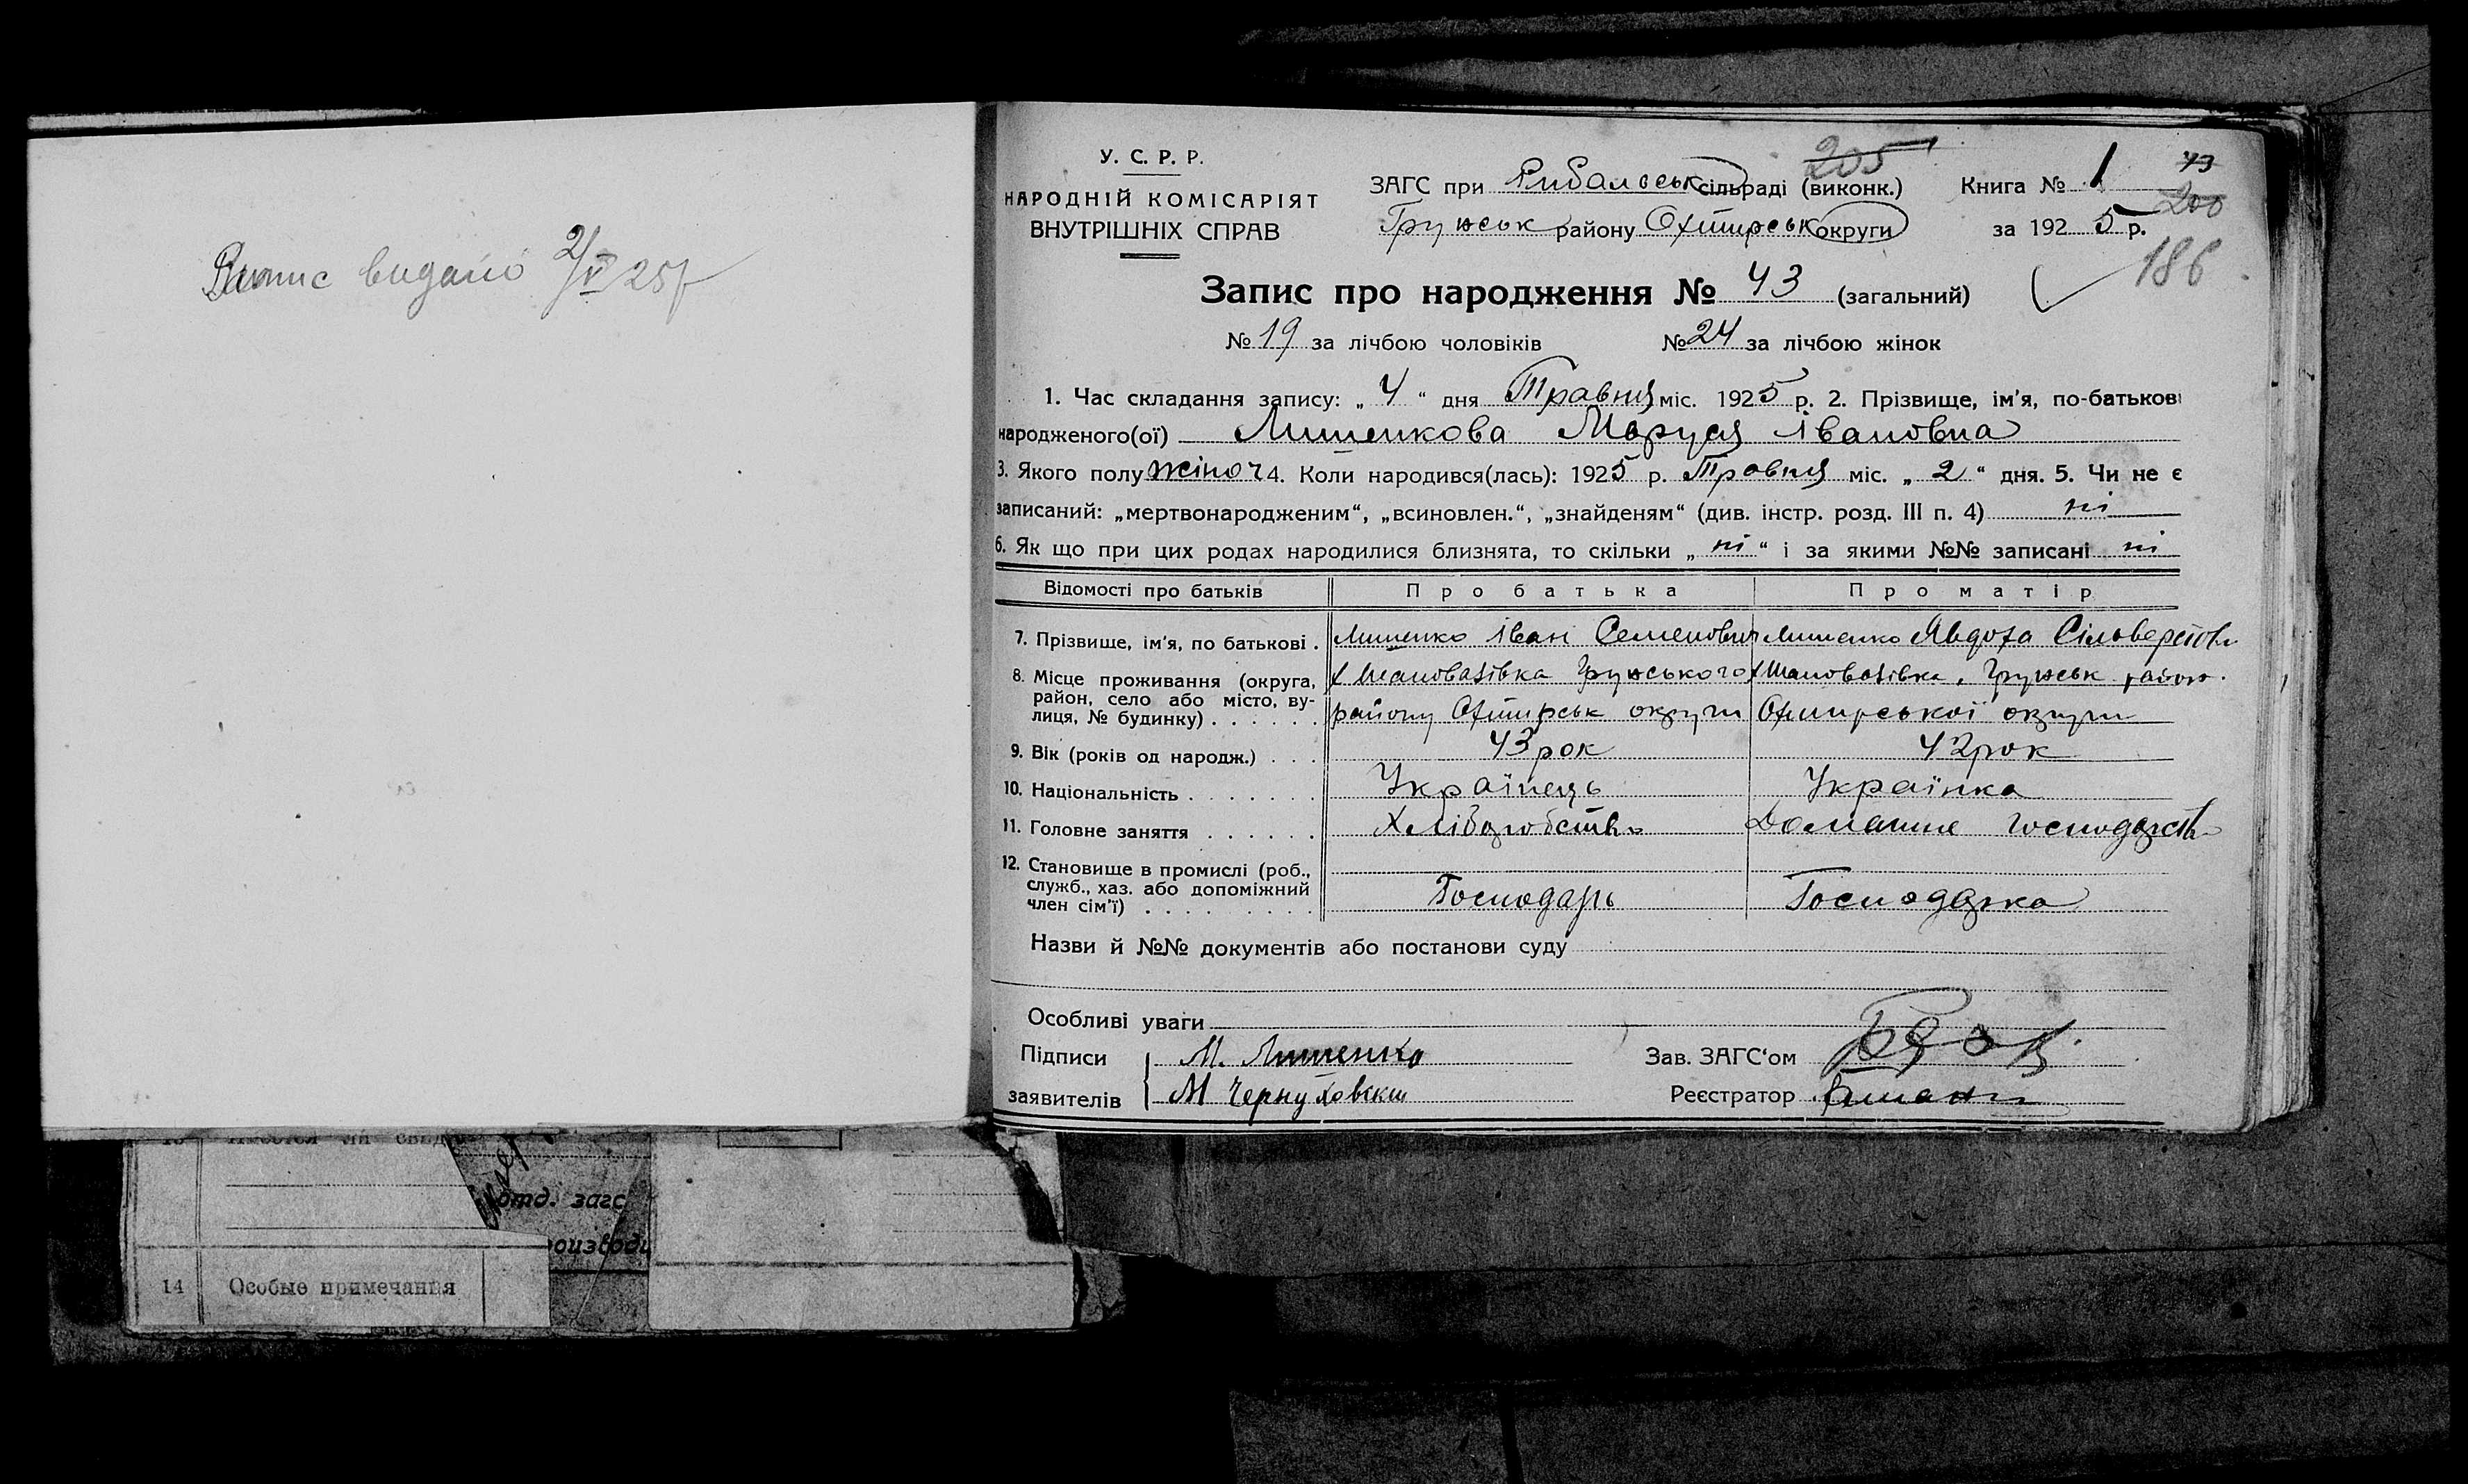 Випис видано 2/V 25р
У. С. Р. Р.
НАРОДНІЙ КОМІСАРІЯТ
ВНУТРІШНІХ СПРАВ
205
ЗАГС при Рибальськ сільраді (виконк.)
Грунськ району Охтирськ округи
Книга № 1
43
200
за 1925 р.
186
Запис про народження № 43 (загальний)
№ 19 за лічбою чоловіків № 24 за лічбою жінок
1. Час складання запису: „ 4 “ дня Травня міс. 1925 р. 2. Прізвище, ім'я, по-батькові
народженого(ої) Лишенкова Маруся Івановна
3. Якого полу жіноч 4. Коли народився(лась): 1925 р. Травня міс. „ 2 “ дня. 5. Чи не є
записаний: „мертвонародженим“, „всиновлен.“, „знайденям“ (див. інстр. розд. III п. 4) ні
6. Як що при цих родах народилися близнята, то скільки „ ні “ і за якими №№ записані ні
Відомості про батьків Про батька Про матір
7. Прізвище, ім'я, по батькові . Лишенко Іван Семенович Лишенко Явдоха Сільверстовн
8. Місце проживання (округа, район, село або місто, вулиця, № будинку) . . . . . .
х Шаповалівка Грунського х Шаповалівка, Грунськ район.
району Охтирськ округи Охтирської округи
9. Вік (років од народж.) . . . 43 рок 42 рок
10. Національність . . . . . . . Українець Українка
11. Головне заняття . . . . . . Хліборобство Домашнє господарств
12. Становище в промислі (роб.,
служб., хаз. або допоміжний
член сім'ї) . . . . . . . . . Господарь Господарка
Назви й №№ документів або постанови суду
Особливі уваги
Підписи М. Лишенко Зав. ЗАГС'ом
заявителів М Чернуховский Реєстратор
отд. загс
14 Особые примечания